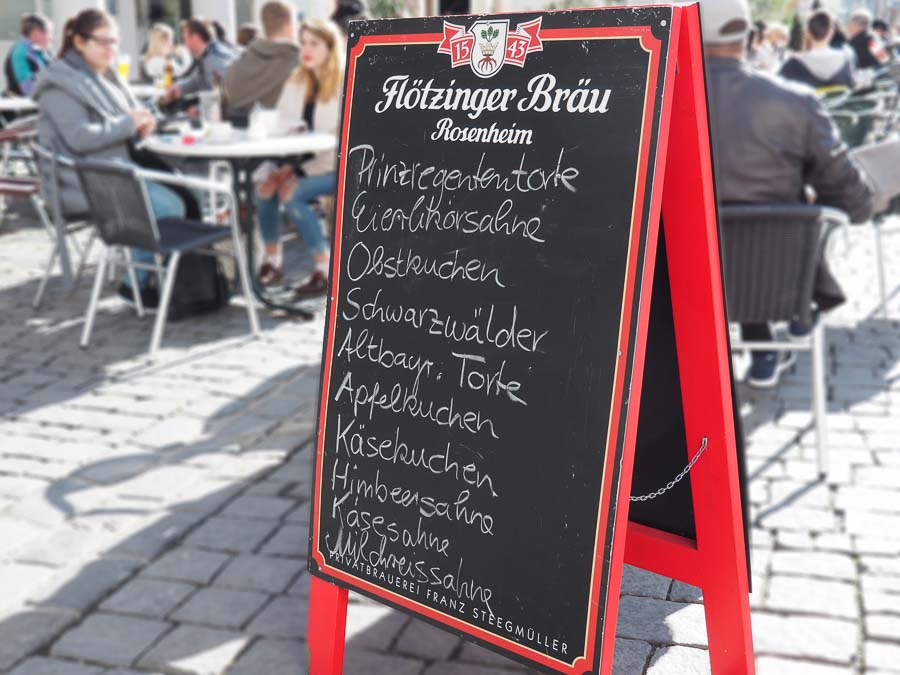 15 43
Flötzinger Bräu
Rosenheim
Prinzregententorte
Eierlikörsahne
Obstkuchen
Schwarzwälder
Altbayr. Torte
Apfelkuchen
Käsekuchen
Himbeersahne
Käsesahne
Milchreissahne
PRIVATBRAUEREI FRANZ STEEGMÜLLER